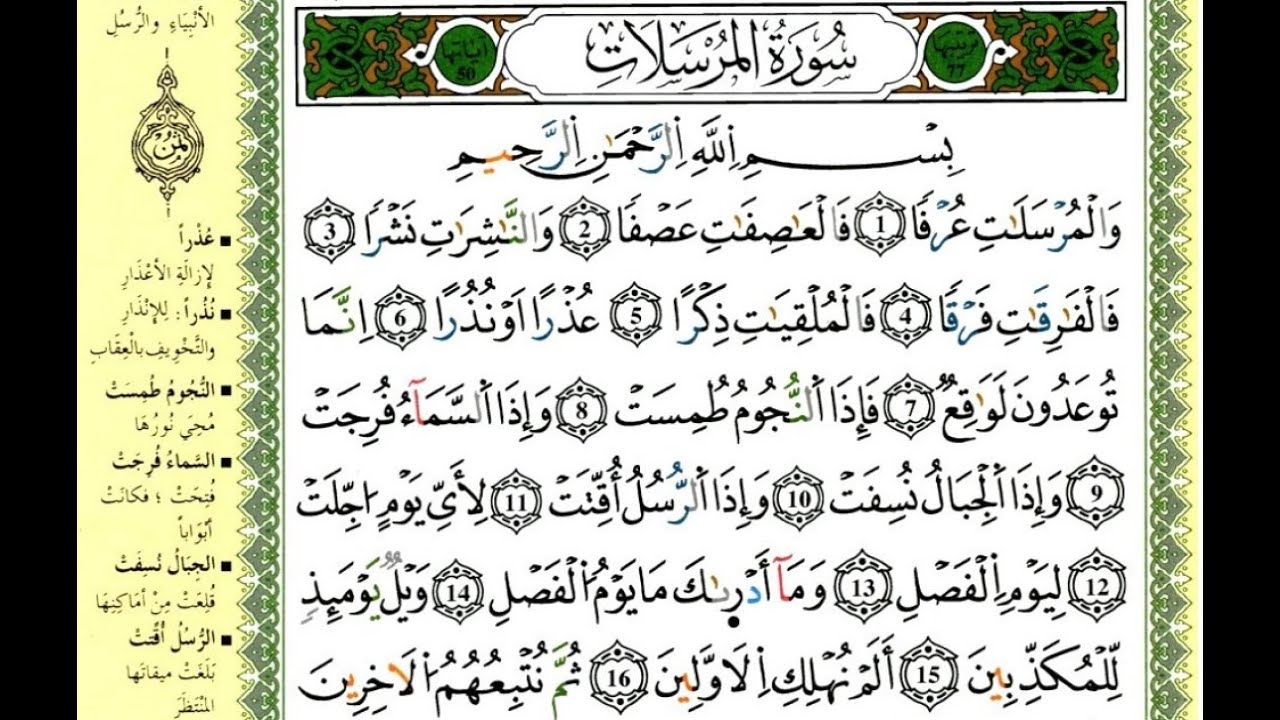 سُورَةُ المُرْسَلَاتِ
مرتيبها 77
آياتها 50
بِسْمِ اِللَّهِ اِلرَّحْمَٰنِ اِلرَّحِيمِ
وَالْمُرْسَلَٰتِ عُرْفٗا 1 فَالْعَٰصِفَٰتِ عَصْفٗا 2 وَالنَّٰشِرَٰتِ نَشْرٗا 3
فَالْفَٰرِقَٰتِ فَرْقٗا 4 فَالْمُلْقِيَٰتِ ذِكْرًا 5 عُذْرًا اَوْ نُذُرًا 6 اِنَّمَا
تُوعَدُونَ لَوَٰقِعٞ 7 فَإِذَا اَلنُّجُومُ طُمِسَتْ 8 وَإِذَا اَلسَّمَآءُ فُرِجَتْ
9 وَإِذَا اَلْجِبَالُ نُسِفَتْ 10 وَإِذَا اَلرُّسُلُ أُقِّتَتْ 11 لِأَيِّ يَوْمٍ اجِّلَتْ
12 لِيَوْمِ اِلْفَصْلِ 13 وَمَآ أَدْر۪ىٰكَ مَا يَوْمُ اُلْفَصْلِ 14 وَيْلٞ يَوْمَئِذٖ
لِّلْمُكَذِّبِينَ 15 أَلَمْ نُهْلِكِ اِلَاوَّلِينَ 16 ثُمَّ نُتْبِعُهُمُ اُلَاخِرِينَ
الأَنْبِيَاءِ والرُّسُلِ
ثمن
■ عُذْراً
لِإِزَالَةِ الأَعْذَارِ
■ نُذُراً: لِلإِنْذَارِ
والتَّخْوِيفِ بالْعِقَابِ
■ النُّجُومُ طُمِسَتْ
مُحِيَ نُورُهَا
■ السَّماءُ فُرِجَتْ
فُتِحَتْ ؛ فكانَتْ
أَبْوَاباً
■ الجِبَالُ نُسِفَتْ
قُلِعَتْ مِنْ أَمَاكِنِهَا
■ الرُّسُلُ أُقِّتَتْ
بَلَغَتْ ميقاتَها
المُنْتَظَرَ